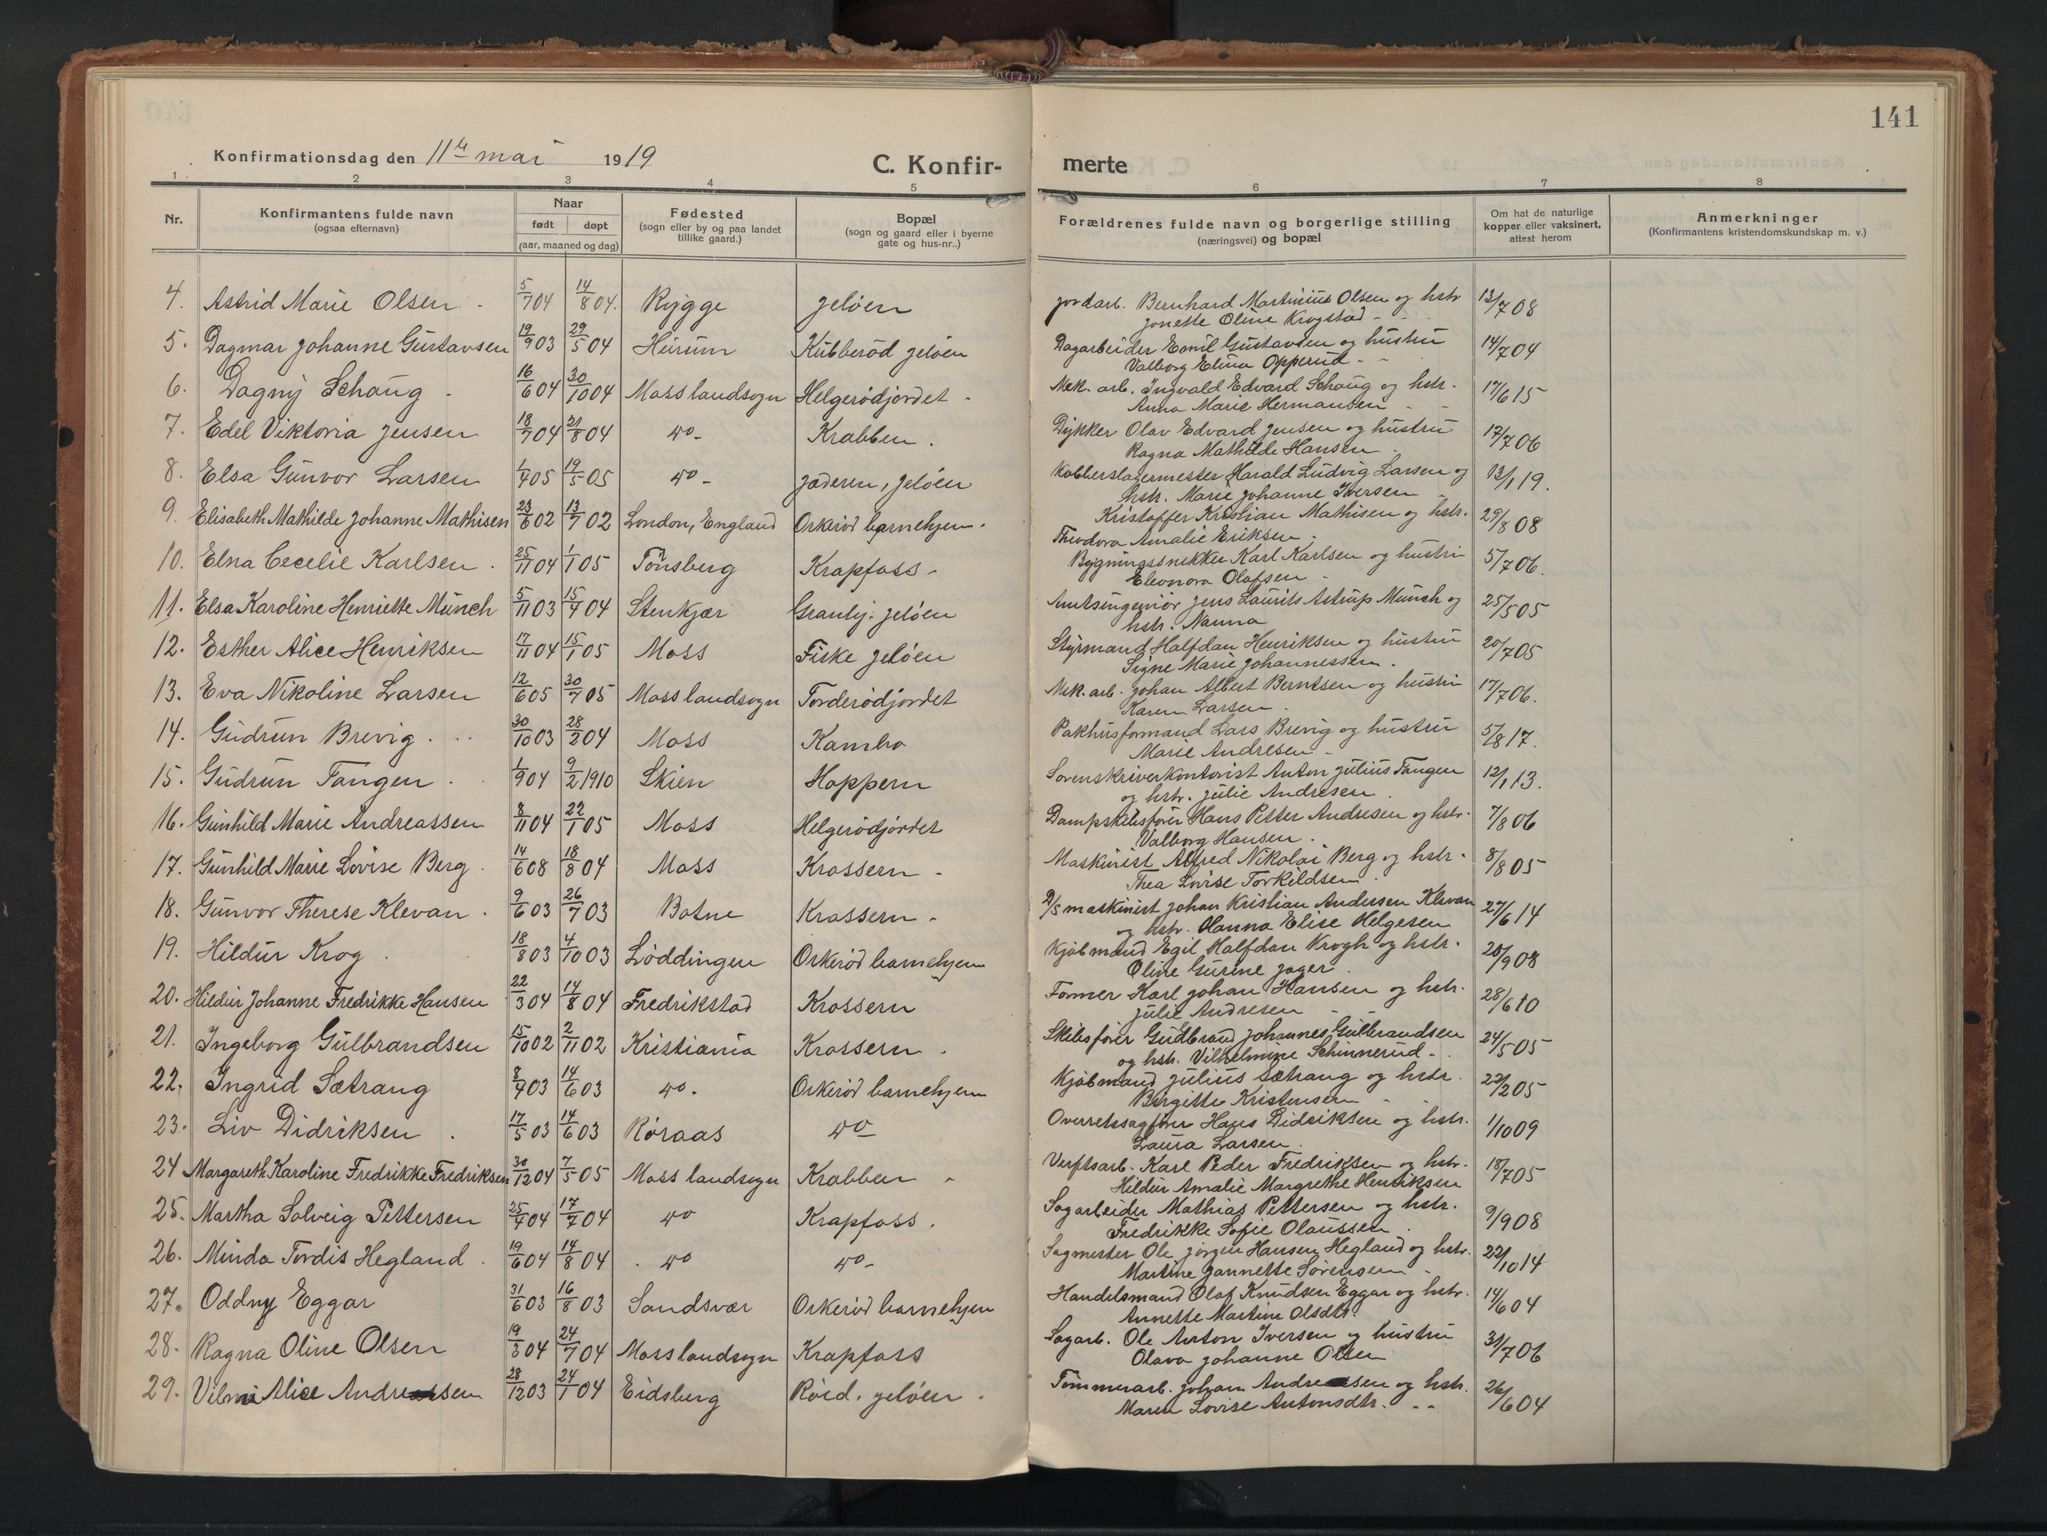 141
Konfirmationsdag den 11te mai 1919
C. Konfir-
merte
1 2 3 4 5 6 7 8
Nr.
Konfirmantens fulde navn
(ogsaa efternavn)
Naar
født døpt
(aar, maaned og dag)
Fødested
(sogn eller by og paa landet
tillike gaard.)
Bopæl
(sogn og gaard eller i byerne
gate og hus-nr..)
Forældrenes fulde navn og borgerlige stilling
(næringsvei) og bopæl
Om hat de naturlige
kopper eller vaksinert,
attest herom
Anmerkninger
(Konfirmantens kristendomskundskap m. v.)
4. Astrid Marie Olsen 5/7 04 14/8 04. Rygge Jeløen Jordarb. Bernhard Martinius Olsen og hstr 13/7 08
Jonette Oline Krogstad
5. Dagmar Johanne Gustavsen 19/9 03 29/5 04 Hurum Kubberød Jeløen Dagarbeider Emil Gustavsen og hustru 14/7 04
Valborg Elina Opperud
6. Dagny Schaug 16/6 04 30/10 04 Moss landsogn Helgerødjordet Mek. arb. Ingvald Edvard Schaug og hstr. 17/6 15
Anna Marie Hermansen
7. Edel Viktoria Jensen 18/7 04 21/8 04 do Krabben. Dykker Olav Edvard Jensen og hustru 12/7 06
Ragna Mathilde Hansen
8. Elsa Gunvor Larsen 1/4 05 19/5 05 do Jæderen, Jeløen Kobberslagermester Harald Ludvig Larsen og 13/1 19.
hstr. Marie Johanne Iversen
9. Elisabeth Mathilde Johanne Mathisen 23/6 02 13/7 02 London, England Orkerød barnehjem. Kristoffer Kristian Mathisen og hstr. 29/8 08
Theodora Amalie Eriksen.
10. Elna Cecelie Karlsen 25/11 04 1/1 05 Tønsberg Krapfoss Bygningssnekker Karl Karlsen og hustru 5/7 06.
Eleonora Olafsen
11. Elsa Karoline Henriette Münch 5/11 03 15/4 04 Stenkjær Granlj. Jeløen Amtsingeniør Jens Laurits Astrup Münch og 25/5 05
hstr. Nanna
12. Esther Alice Henriksen 17/11 04 15/1 05 Moss Fiske Jeløen Styrmand Halfdan Henriksen og hustru 20/7 05
Signe Marie Johannessen.
13. Eva Nikoline Larsen 12/6 05 30/7 05 Moss landsogn Torderødjordet Mek. arb. Johan Albert Berntsen og hustru 17/7 06.
Karen Larsen.
14. Gudrun Brevig 30/10 03 28/2 04 Moss Kambo Pakhusformand Lars Brevig og hustru 5/8 17.
Marie Andresen
15. Gudrun Tangen 1/9 04 9/2 1910 Skien Hoppern Sorenskriverkontorist Anton Julius Tangen 12/1 13.
og hstr. Julie Andresen.
16. Gunhild Marie Andreassen 8/11 04 22/1 05 Moss Helgerødjordet Dampskibsfører Hans Petter Andresen og hstr. 7/8 06
Valborg Hansen.
17. Gunhild Marie Lovise Berg 14/6 08 18/8 04 Moss Krossern Maskinist Alfred Nikolai Berg og hstr. 8/8 05
Thea Lovise Torkildsen
18. Gunvor Therese Klevan 9/6 03 26/7 03 Botne Krossern D/s maskinist Johan Kristian Andersen Klevan 27/6 14
og hstr. Hanna Elise Helgesen
19. Hildur Krog 18/8 03 4/10 03 Løddingen Orkerød barnehjem Kjøbmand Egil Halfdan Krogh og hstr. 20/9 08
Oline Gurine Jager
20. Hildur Johanne Fredrikke Hansen 22/3 04 14/8 04 Fredrikstad Krossern Former Karl Johan Hansen og hstr. 28/6 10
Julie Andresen
21. Ingeborg Gulbrandsen 15/10 02 2/11 02 Kristiania Krossern. Skibsfører Gudbrand Johannes Gulbrandsen 24/5 05
og hst. Vilhelmine Schinnerud
22. Ingrid Sætrang 8/4 03 14/6 03 do. Orkerød barnehjem Kjøbmand Julius Sætrang og hstr. 22/2 05
Birgitte Kristensen
23. Liv Didriksen 17/5 03 14/6 03 Røraas do Overretssagfører Hans Didriksen og hstr. 1/10 09
Laura Larsen.
24 Margareth Karoline Fredrikke Fredriksen 30/12 04 7/5 05 Moss landsogn Krabben Verftsarb. Karl Peder Fredriksen og hstr. 18/7 05
Hildur Amalie Margrethe Henriksen
25. Martha Solveig Pettersen 25/4 04 17/7 04 do Krapfoss. Sagarbeider Mathias Pettersen og hstr. 9/9 08
Fredrikke Sofie Olaussen
26. Minda Tordis Hegland 19/6 04 14/8 04 do do Sagmester Ole Jørgen Hansen Hegland og hstr. 22/10 14
Martine Jannette Sørensen
27. Oddny Eggar 31/6 03 16/8 03 Sandsvær Orkerød barnehjem Handelsmand Olaf Knudsen Eggar og hstr. 14/6 04
Annette Martine Olsdtr.
28. Ragna Oline Olsen 19/3 04 24/7 04 Moss landsogn Krapfoss Sagarb. Ole Anton Iversen og hustru 31/7 06
Olava Johanne Olsen
29. Vilma Alice Andreassen 28/12 03 24/1 04 Eidsberg Røed. Jeløen. Tømmerarb. Johan Andreassen og hstr. 26/6 04
Maren Lovise Antonsdtr.